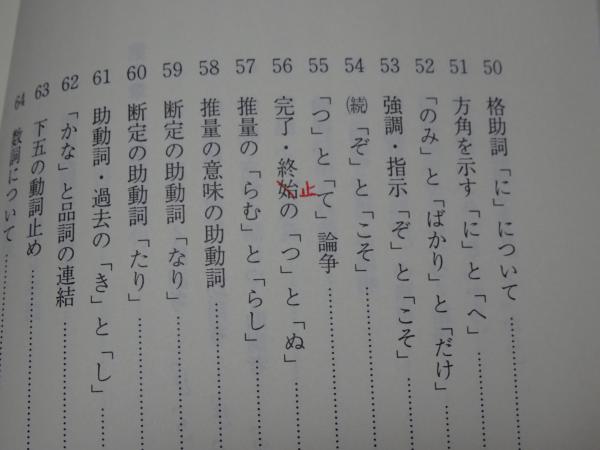 50 格助詞「に」について
51 方角を示す「に」と「へ」
52 「のみ」と「ばかり」と「だけ」
53 強調・指示「ぞ」と「こそ」
54 ㈵「ぞ」と「こそ」
55 「つ」と「て」論争
56 完了・終始の「つ」と「ぬ」
止
57 推量の「らむ」と「らし」
58 推量の意味の助動詞
59 断定の助動詞「なり」
60 断定の助動詞「たり」
61 助動詞・過去の「き」と「し」
62 「かな」と品詞の連結
63 下五の動詞止め
64 数詞について